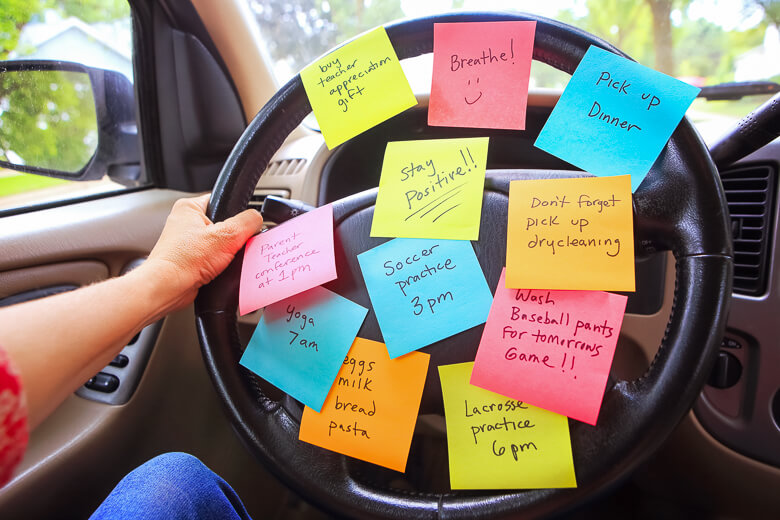 buy
teacher
appreciation
gift
Breathe!
Pick up
Dinner
Stay
Positive!!
Don't forget
pick up
drycleaning
Parent
Teacher
conference
at 1pm
Soccer
practice
3pm
Wash
Baseball pants
for tomorrows
Game!!
Yoga
7am
eggs
milk
bread
pasta
Lacrosse
practice
6pm